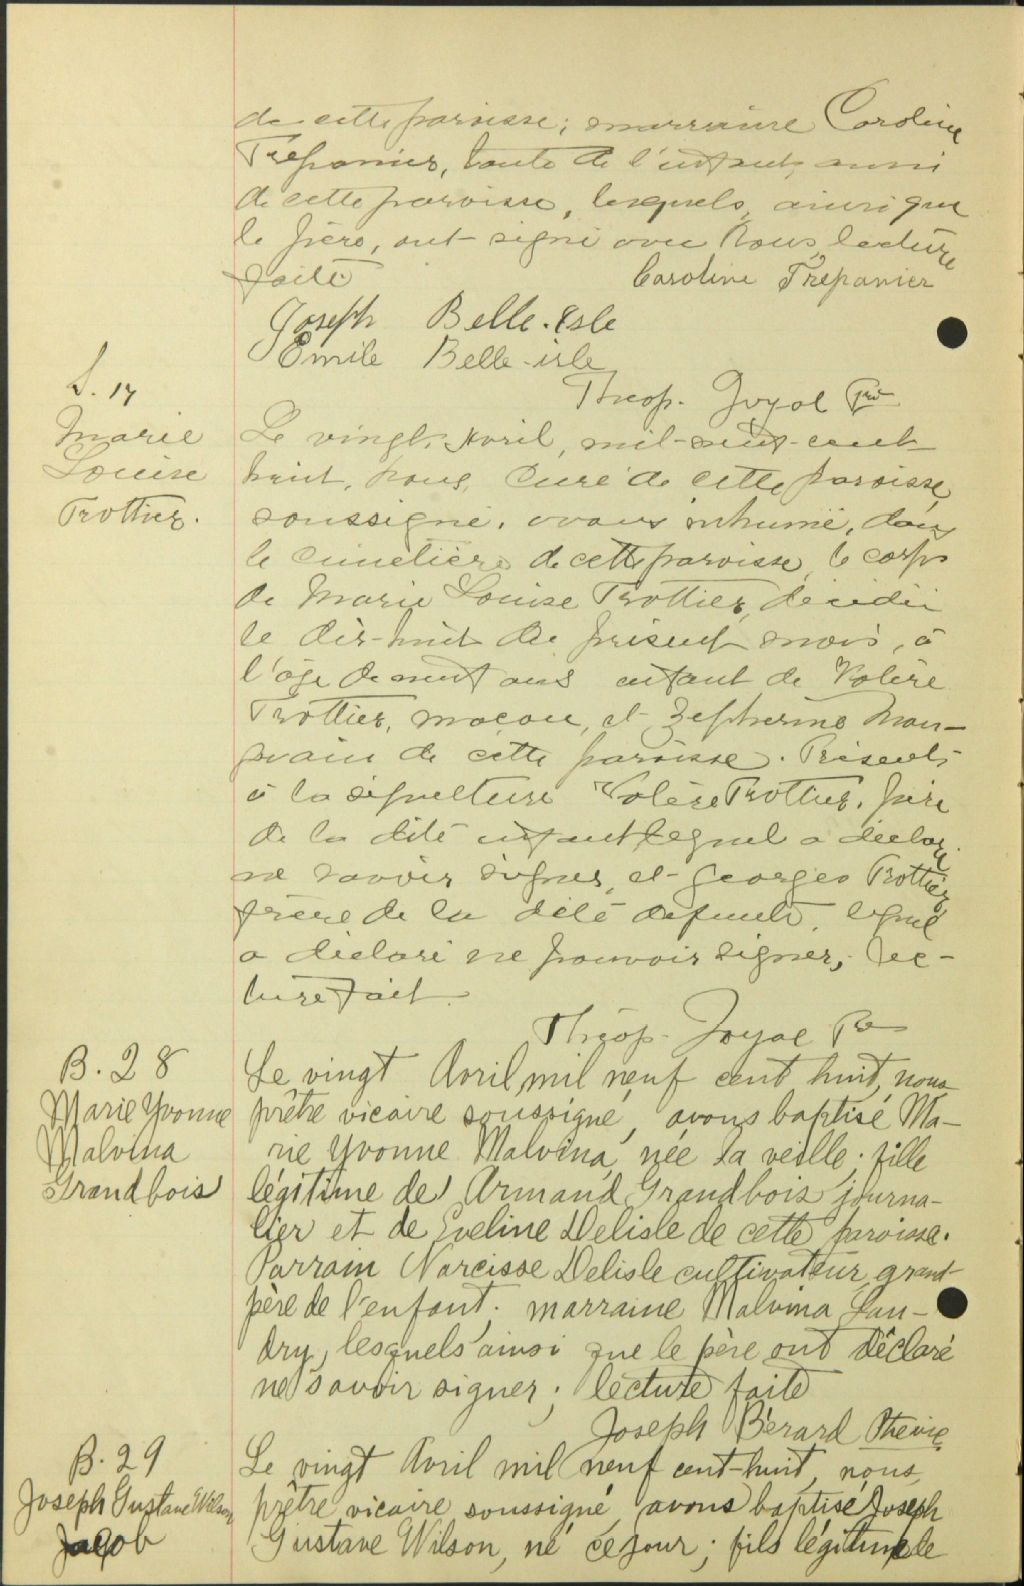 de cette paroisse; marraine Caroline
Trepanier, tante de l'enfant, aussi
de cette paroisse, lesquels, ainsi que
le père, ont signé avec Nous, lecture
faite
Caroline Trepanier
Joseph Belle-isle
Emile Belle-isle
Theop. Joyal Ptre
S. 17
Marie
Louise
Trottier.
Le vingt, Avril, mil-neuf-cent-
huit, Nous, Curé de cette paroisse,
soussigné, avons inhumé, dans
le cimetière de cette paroisse, le corps
de Marie Louise Trottier, décédée
le dix-huit du présent mois, à
l'âge de neuf ans enfant de Valère
Trottier, maçon, et Zepherine Mon-
grain de cette paroisse. Présents
à la sépulture Valère Trottier, père
de la dite enfant lequel a déclaré
ne savoir signer, et Georges Trottier,
frère de la dite defunte, lequel
a déclaré ne pouvoir signer, lec-
ture fait.
Théop. Joyal Ptre
B. 28
Marie Yvonne
Malvina
Grandbois
Le vingt Avril mil neuf cent huit, nous
prêtre vicaire soussigné, avons baptisé Ma-
rie Yvonne Malvina, née la veille; fille
légitime de Armand Grandbois journa-
lier et de Eveline Delisle de cette paroisse.
Parrain Narcisse Delisle cultivateur, grand-
père de l'enfant; marraine Malvina Lan-
dry, lesquels ainsi que le père ont déclaré
ne savoir signer; lecture faite
Joseph Bérard Ptre vic
B. 29
Joseph Gustave Wilson
Jacob
Le vingt Avril mil neuf cent-huit, nous,
prêtre vicaire soussigné avons baptisé Joseph
Gustave Wilson, né ce jour; fils légitime de